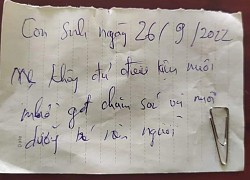 Con sinh ngày 26/9/2022
Mẹ không đủ điều kiện nuôi
nhờ gđ chăm sóc và nuôi
dưỡng bé nên người